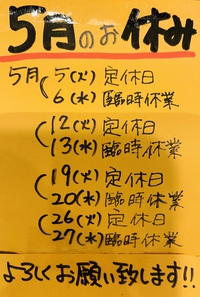 5月のお休み
5月 5(火) 定休日
6(水) 臨時休業
12(火) 定休日
13(水) 臨時休業
19(火) 定休日
20(水) 臨時休業
26(火) 定休日
27(水) 臨時休業
よろしくお願い致します!!